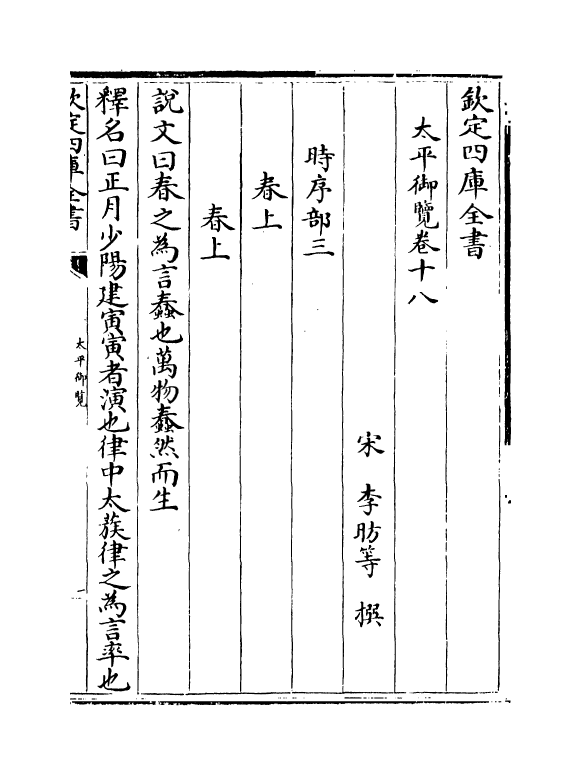 欽定四庫全書
太平御覽卷十八
宋 李昉等 撰
時序部三
春上
春上
說文曰春之為言蠢也萬物蠢然而生
釋名曰正月少陽建寅寅者演也律中太蔟律之為言率也
欽定四庫全書
太平御覽
一